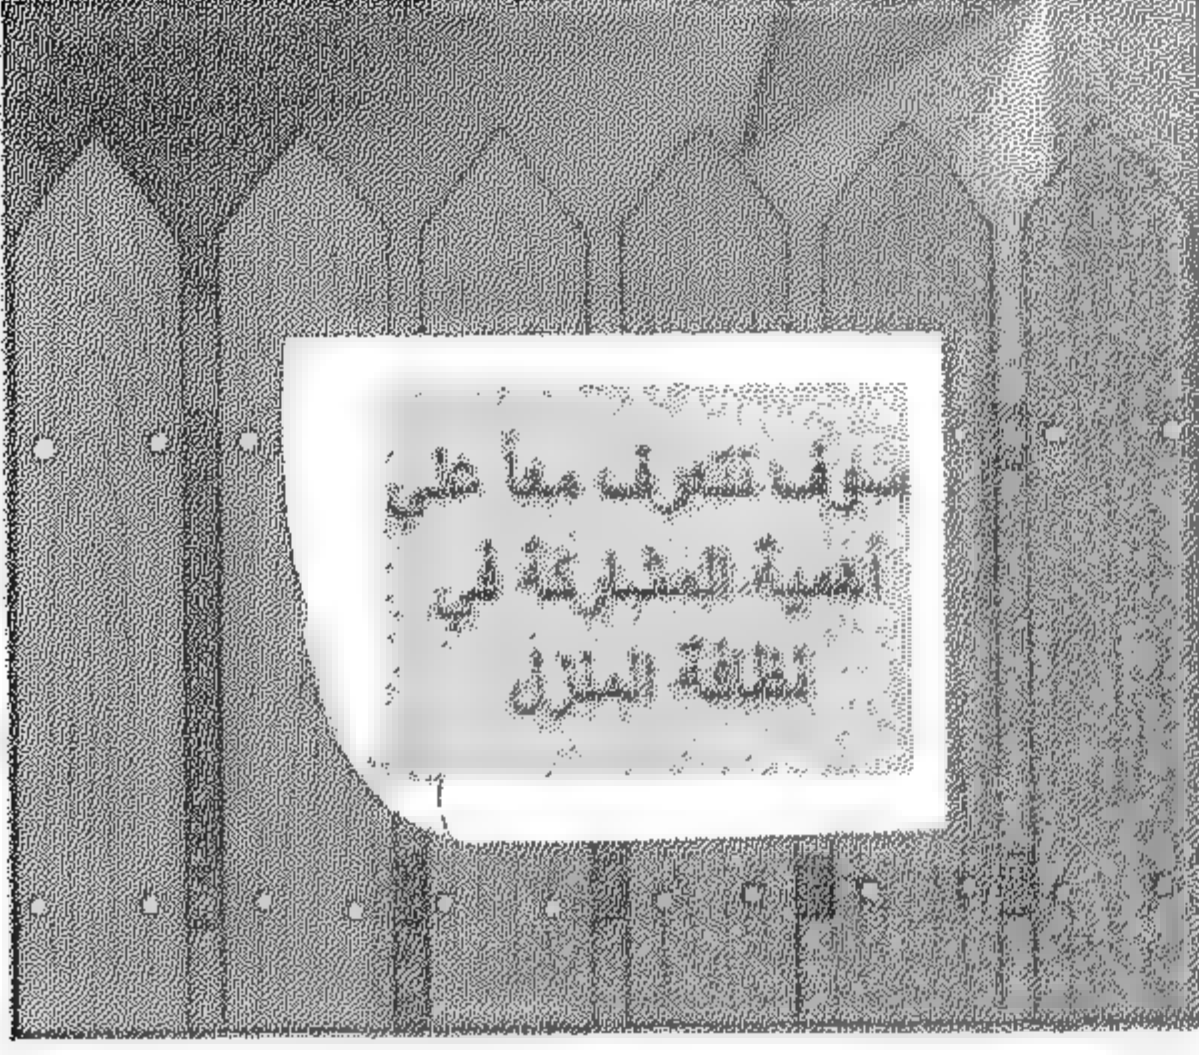 سوف نتعرف معا على
أهمية المشاركة في
نظافة المنزل